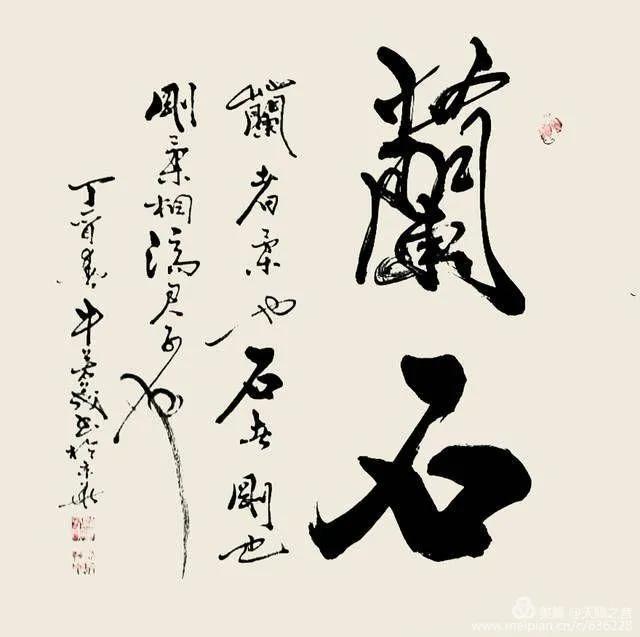 蘭石
蘭者柔也石者剛也
剛柔相濟君子也
丁酉春牛書於京華
美篇 @天籁之音
www.meipian.cn/c/636228